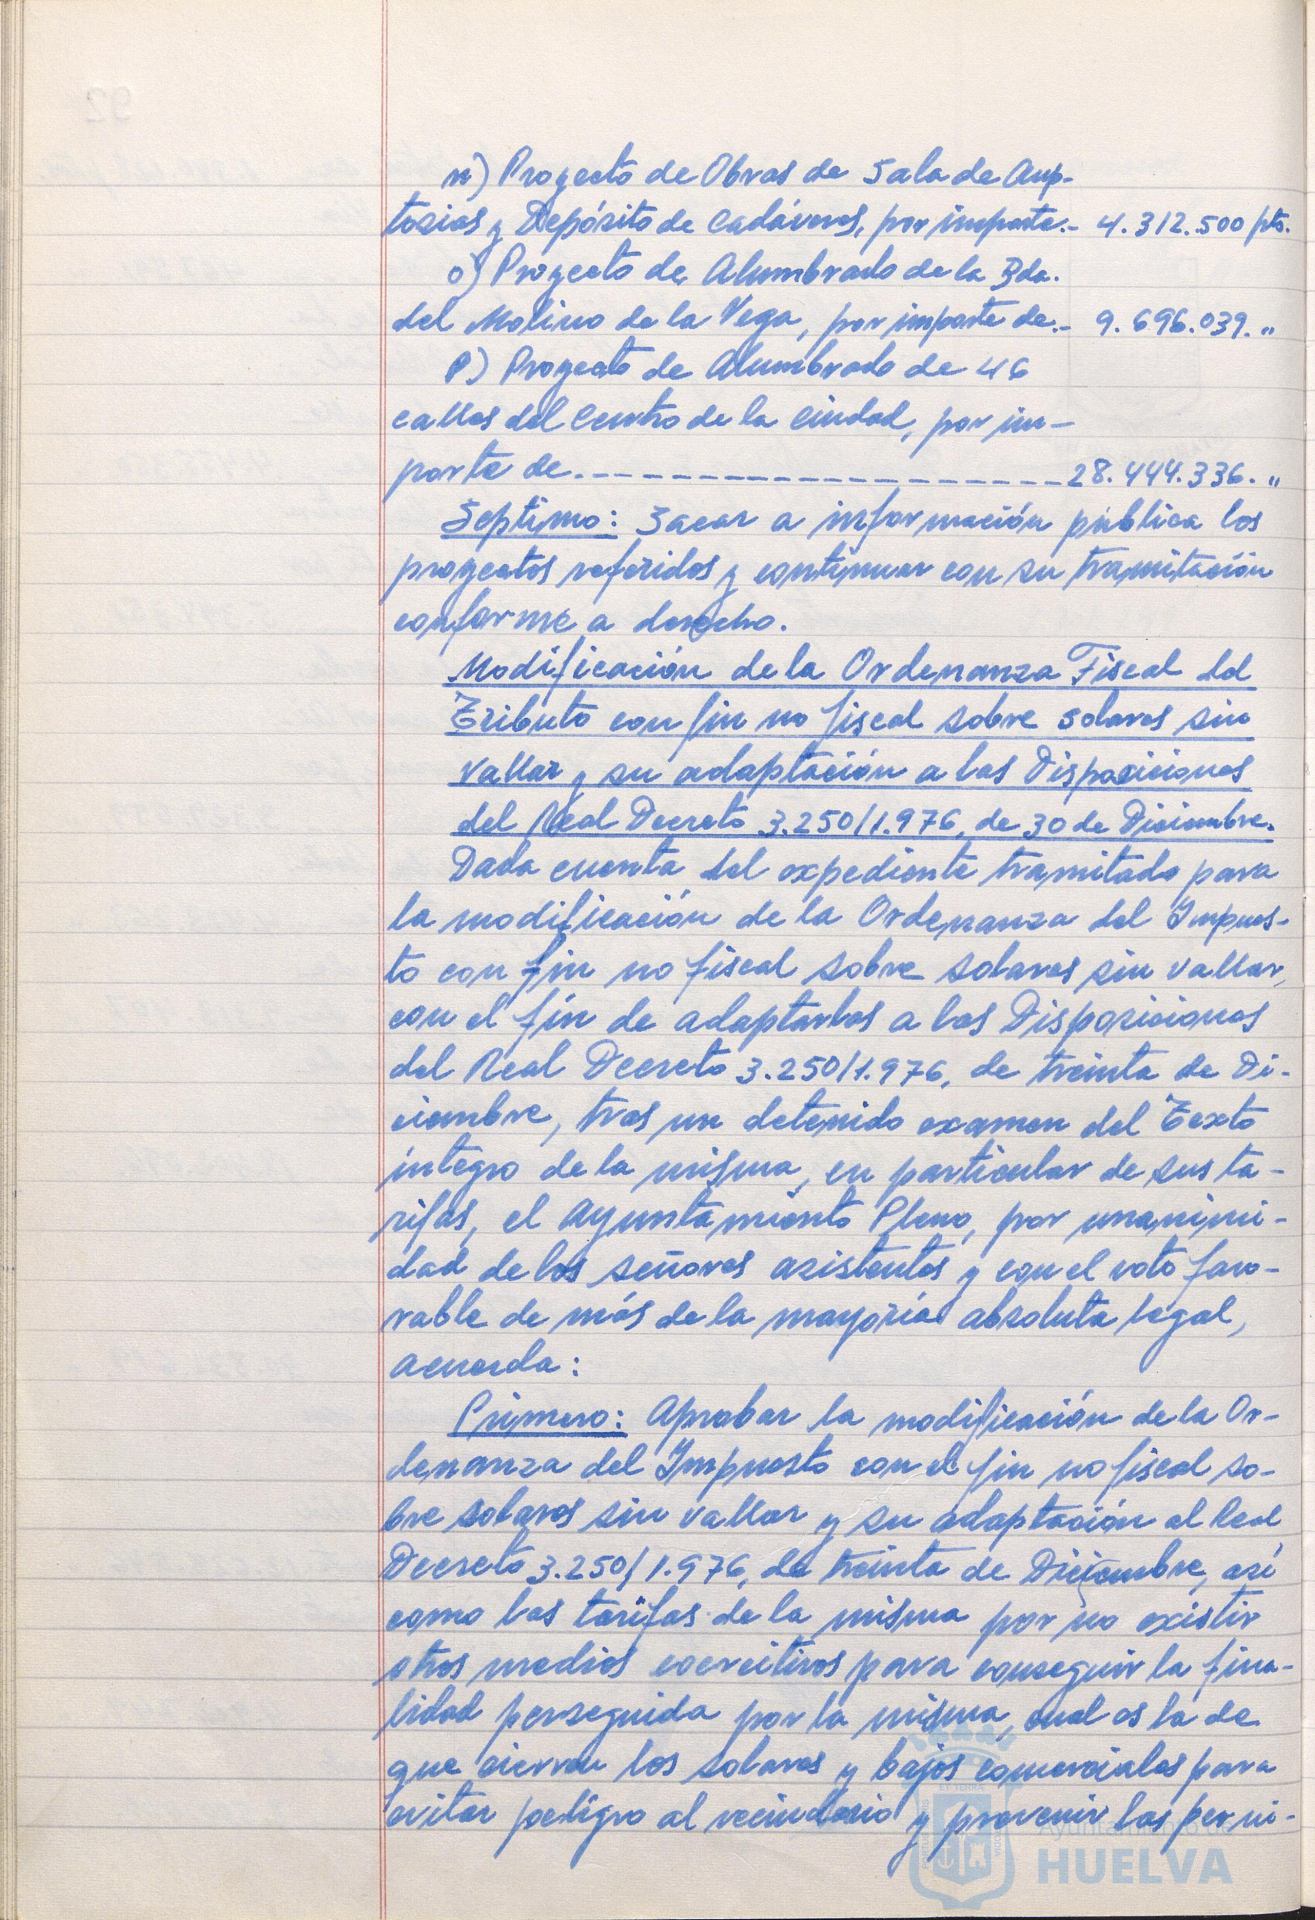 n) Proyecto de Obras de Sala de Aup-
tosias y Depósito de cadáveres, por importe.- 4.312.500 pts.
o) Proyecto de Alumbrado de la Bda.
del Molino de la Vega, por importe de.- 9.696.039. "
p) Proyecto de Alumbrado de 46
calles del Centro de la Ciudad, por im-
porte de.------------------28.444.336. "
Septimo: Sacar a información pública los
proyectos referidos y continuar con su tramitación
conforme a derecho.
Modificación de la Ordenanza Fiscal del
Tributo con fin no fiscal sobre solares sin
vallar y su adaptación a las Disposiciones
del Real Decreto 3.250/1.976, de 30 de Diciembre.
Dada cuenta del expediente tramitado para
la modificación de la Ordenanza del Impues-
to con fin no fiscal sobre solares sin vallar,
con el fín de adaptarlos a las Disposiciones
del Real Decreto 3.250/1.976, de treinta de Di-
ciembre, tras un detenido examen del Texto
integro de la misma, en particular de sus ta-
rifas, el Ayuntamiento Pleno, por unanimi-
dad de los señores asistentes y con el voto favo-
rable de más de la mayoría absoluta legal,
acuerda:
Primero: Aprobar la modificación de la Or-
denanza del Impuesto con el fin no fiscal so-
bre solares sin vallar y su adaptación al Real
Decreto 3.250/1.976, de treinta de Diciembre, así
como las tarifas de la misma por no existir
otros medios coercitivos para conseguir la fina-
lidad perseguida por la misma, cual es la de
que cierren los solares y bajos comerciales para
evitar peligro al vecindario y prevenir las perni-
Ayuntamiento de
HUELVA